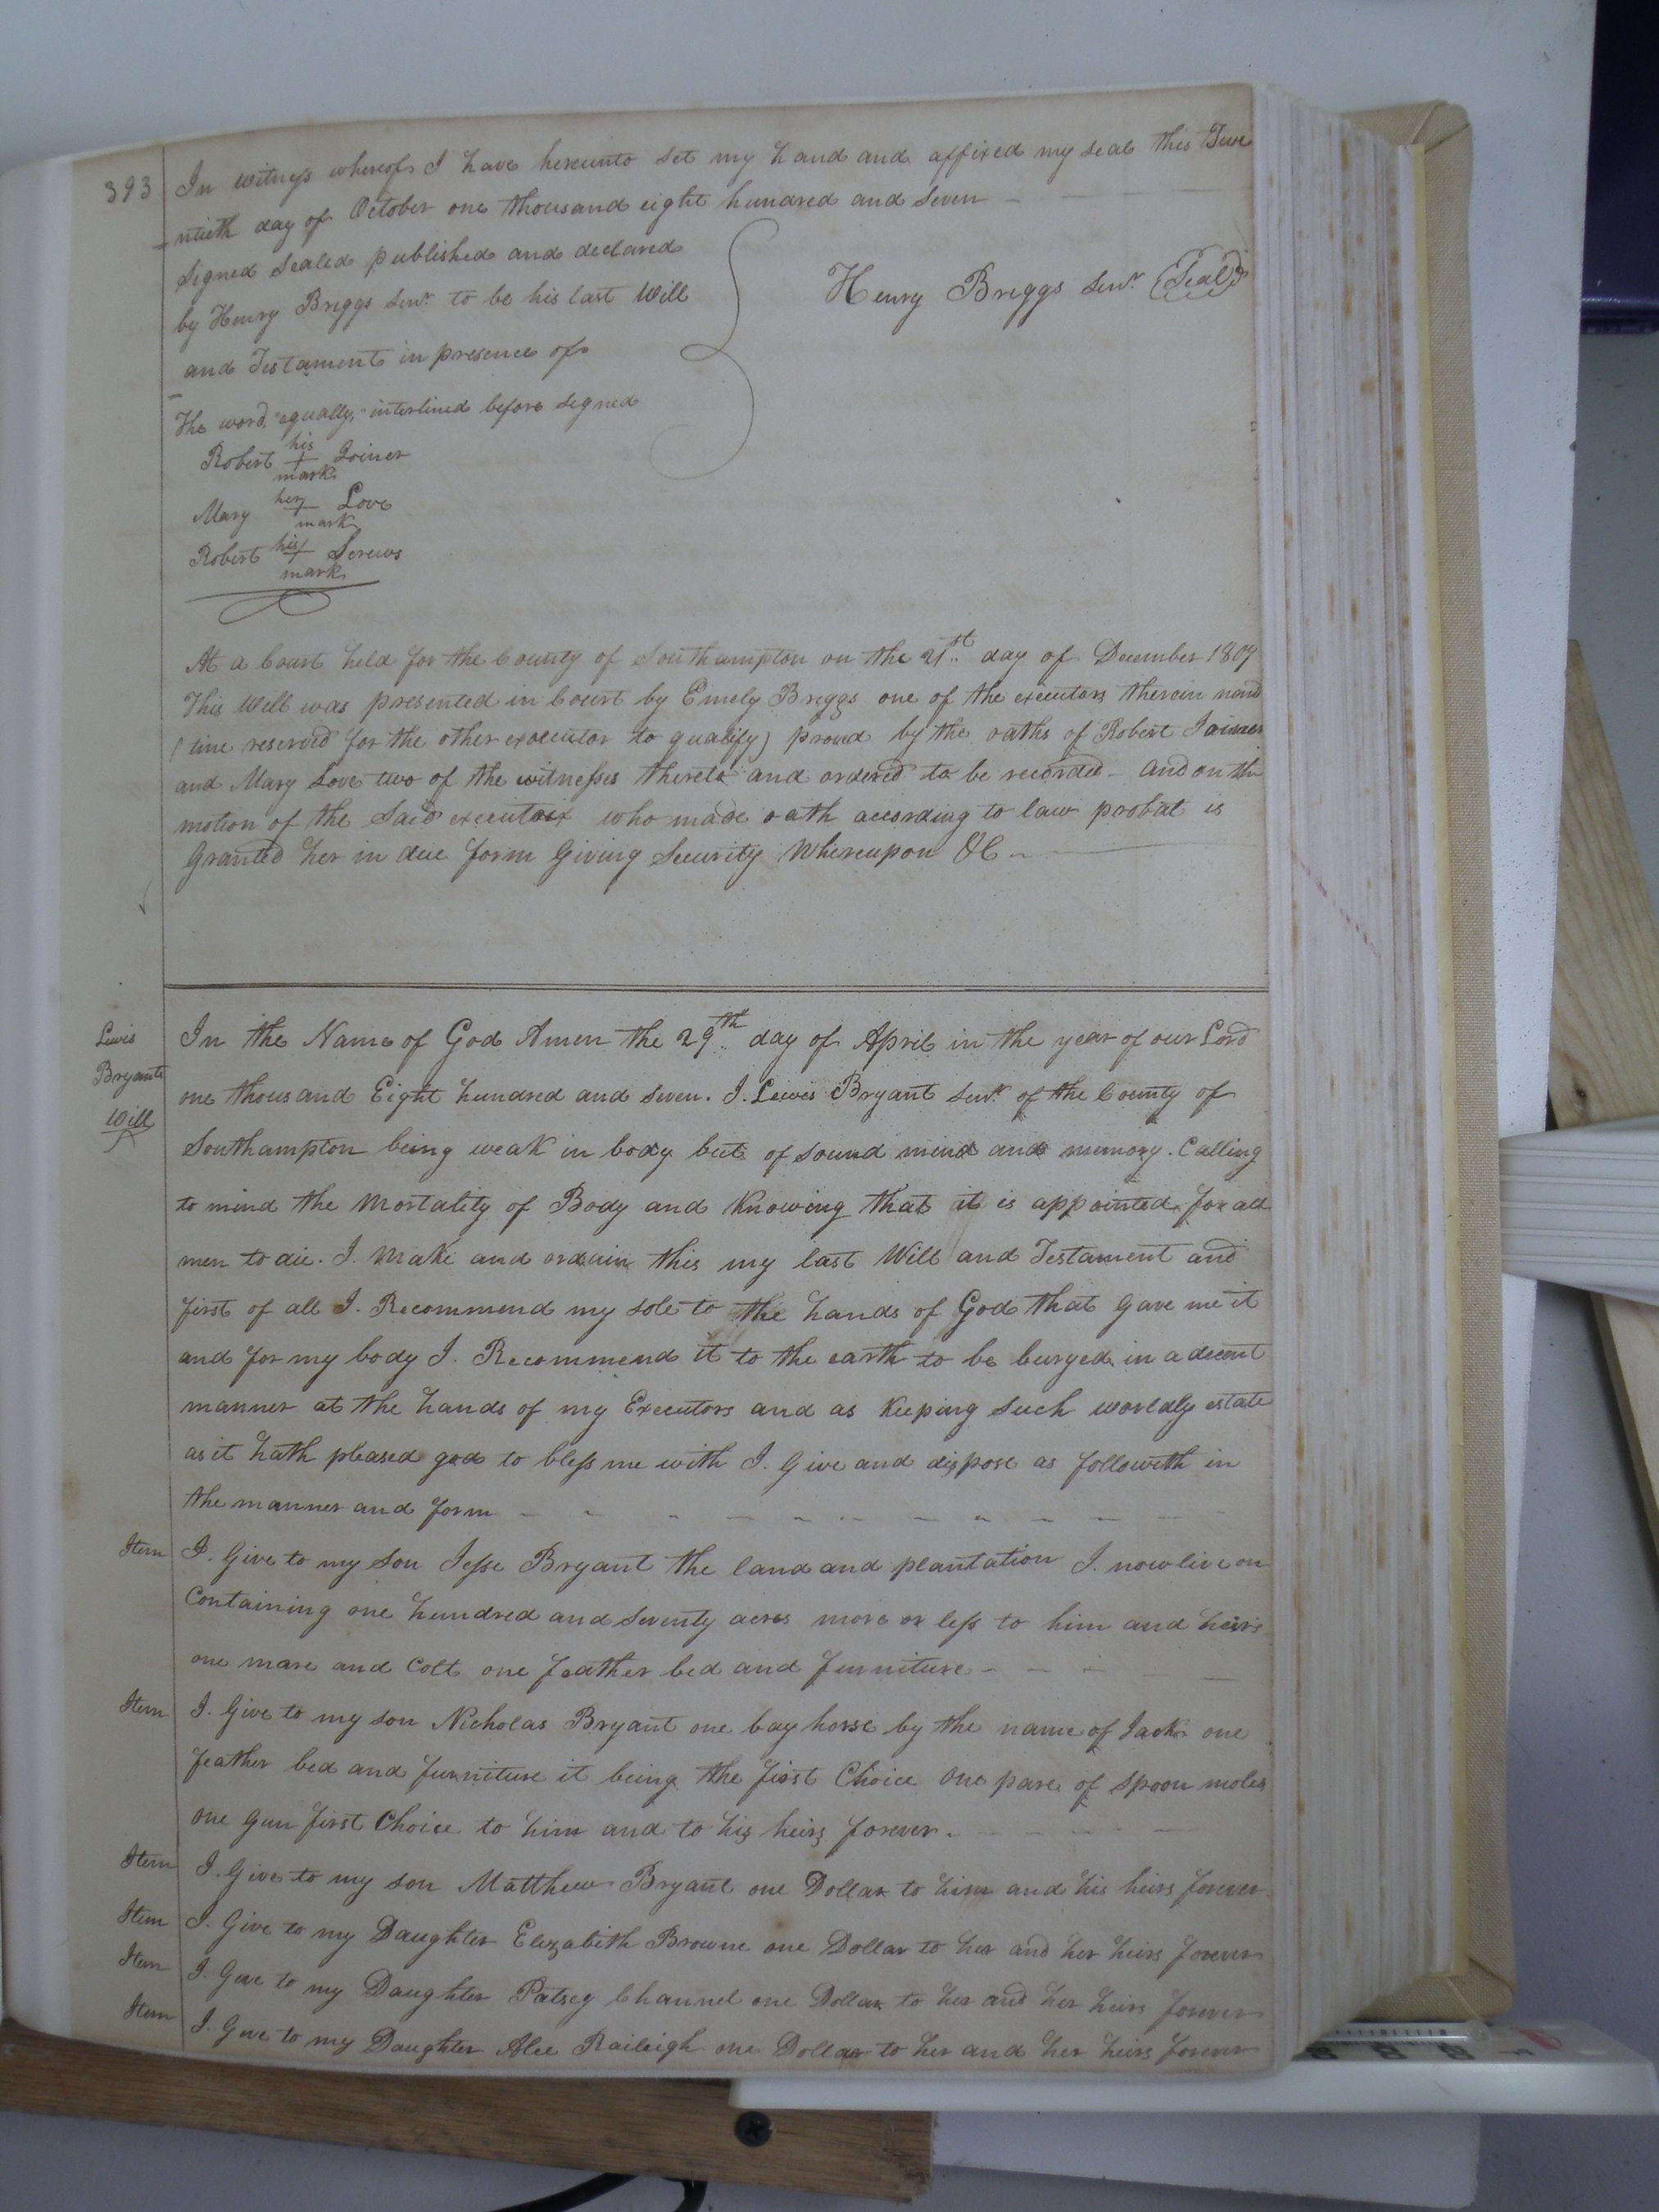 393
In witness whereof I have hereunto set my hand and affixed my seal this Twe
ntieth day of October one thousand eight hundred and Seven
Signed Sealed published and declared
by Henry Briggs Senr. to be his last Will
and Testament in presence of
The word "equally" interlined before signed
Henry Briggs Senr. (Seal)
his
Robert + Joiner
mark
her
Mary + Love
mark
his
Robert + Screws
mark
At a Court held for the County of Southampton on the 21st. day of December 1807
This Will was presented in Court by Emely Briggs one of the executors therein namd
(time reserved for the other executor to qualify) proved by the oaths of Robert Joiner
and Mary Love two of the witnesses thereto and ordered to be recorded - And on the
motion of the Said executrix who made oath according to law probat is
Granted her in due form Giving Security Whereupon &C
Lewis
Bryants
Will
In the Name of God Amen the 29th. day of April in the year of our Lord
one thousand Eight hundred and seven. I. Lewis Bryant Senr. of the County of
Southampton being weak in body but of sound mind and memory. Calling
to mind the Mortality of Body and Knowing that it is appointed for all
men to die. I. Make and ordain this my last Will and Testament and
first of all I. Recommend my sole to the hands of God that Gave me it
and for my body I. Recommend it to the earth to be buryed in a decent
manner at the hands of my Executors and as Keeping Such worldly estate
as it hath pleased god to bless me with I. Give and dispose as followith in
the manner and form
Item I. Give to my Son Jesse Bryant the land and plantation I. now live on
Containing one hundred and Seventy acres more or less to him and heirs
one mare and Colt one feather bed and furniture
Item I. Give to my son Nicholas Bryant one bay horse by the name of Jack one
feather bed and furniture it being the first Choice One pare of Spoon moles
one Gun first Choice to him and to his heirs forever.
Item I. Give to my son Matthew Bryant one Dollar to him and his heirs forever
Item I. Give to my Daughter Elezabeth Browne one Dollar to her and her heirs forever
Item I. Give to my Daughter Patsey Channel one Dollar to her and her heirs forever
Item I. Give to my Daughter Alee Raileigh one Dollar to her and her heirs forever